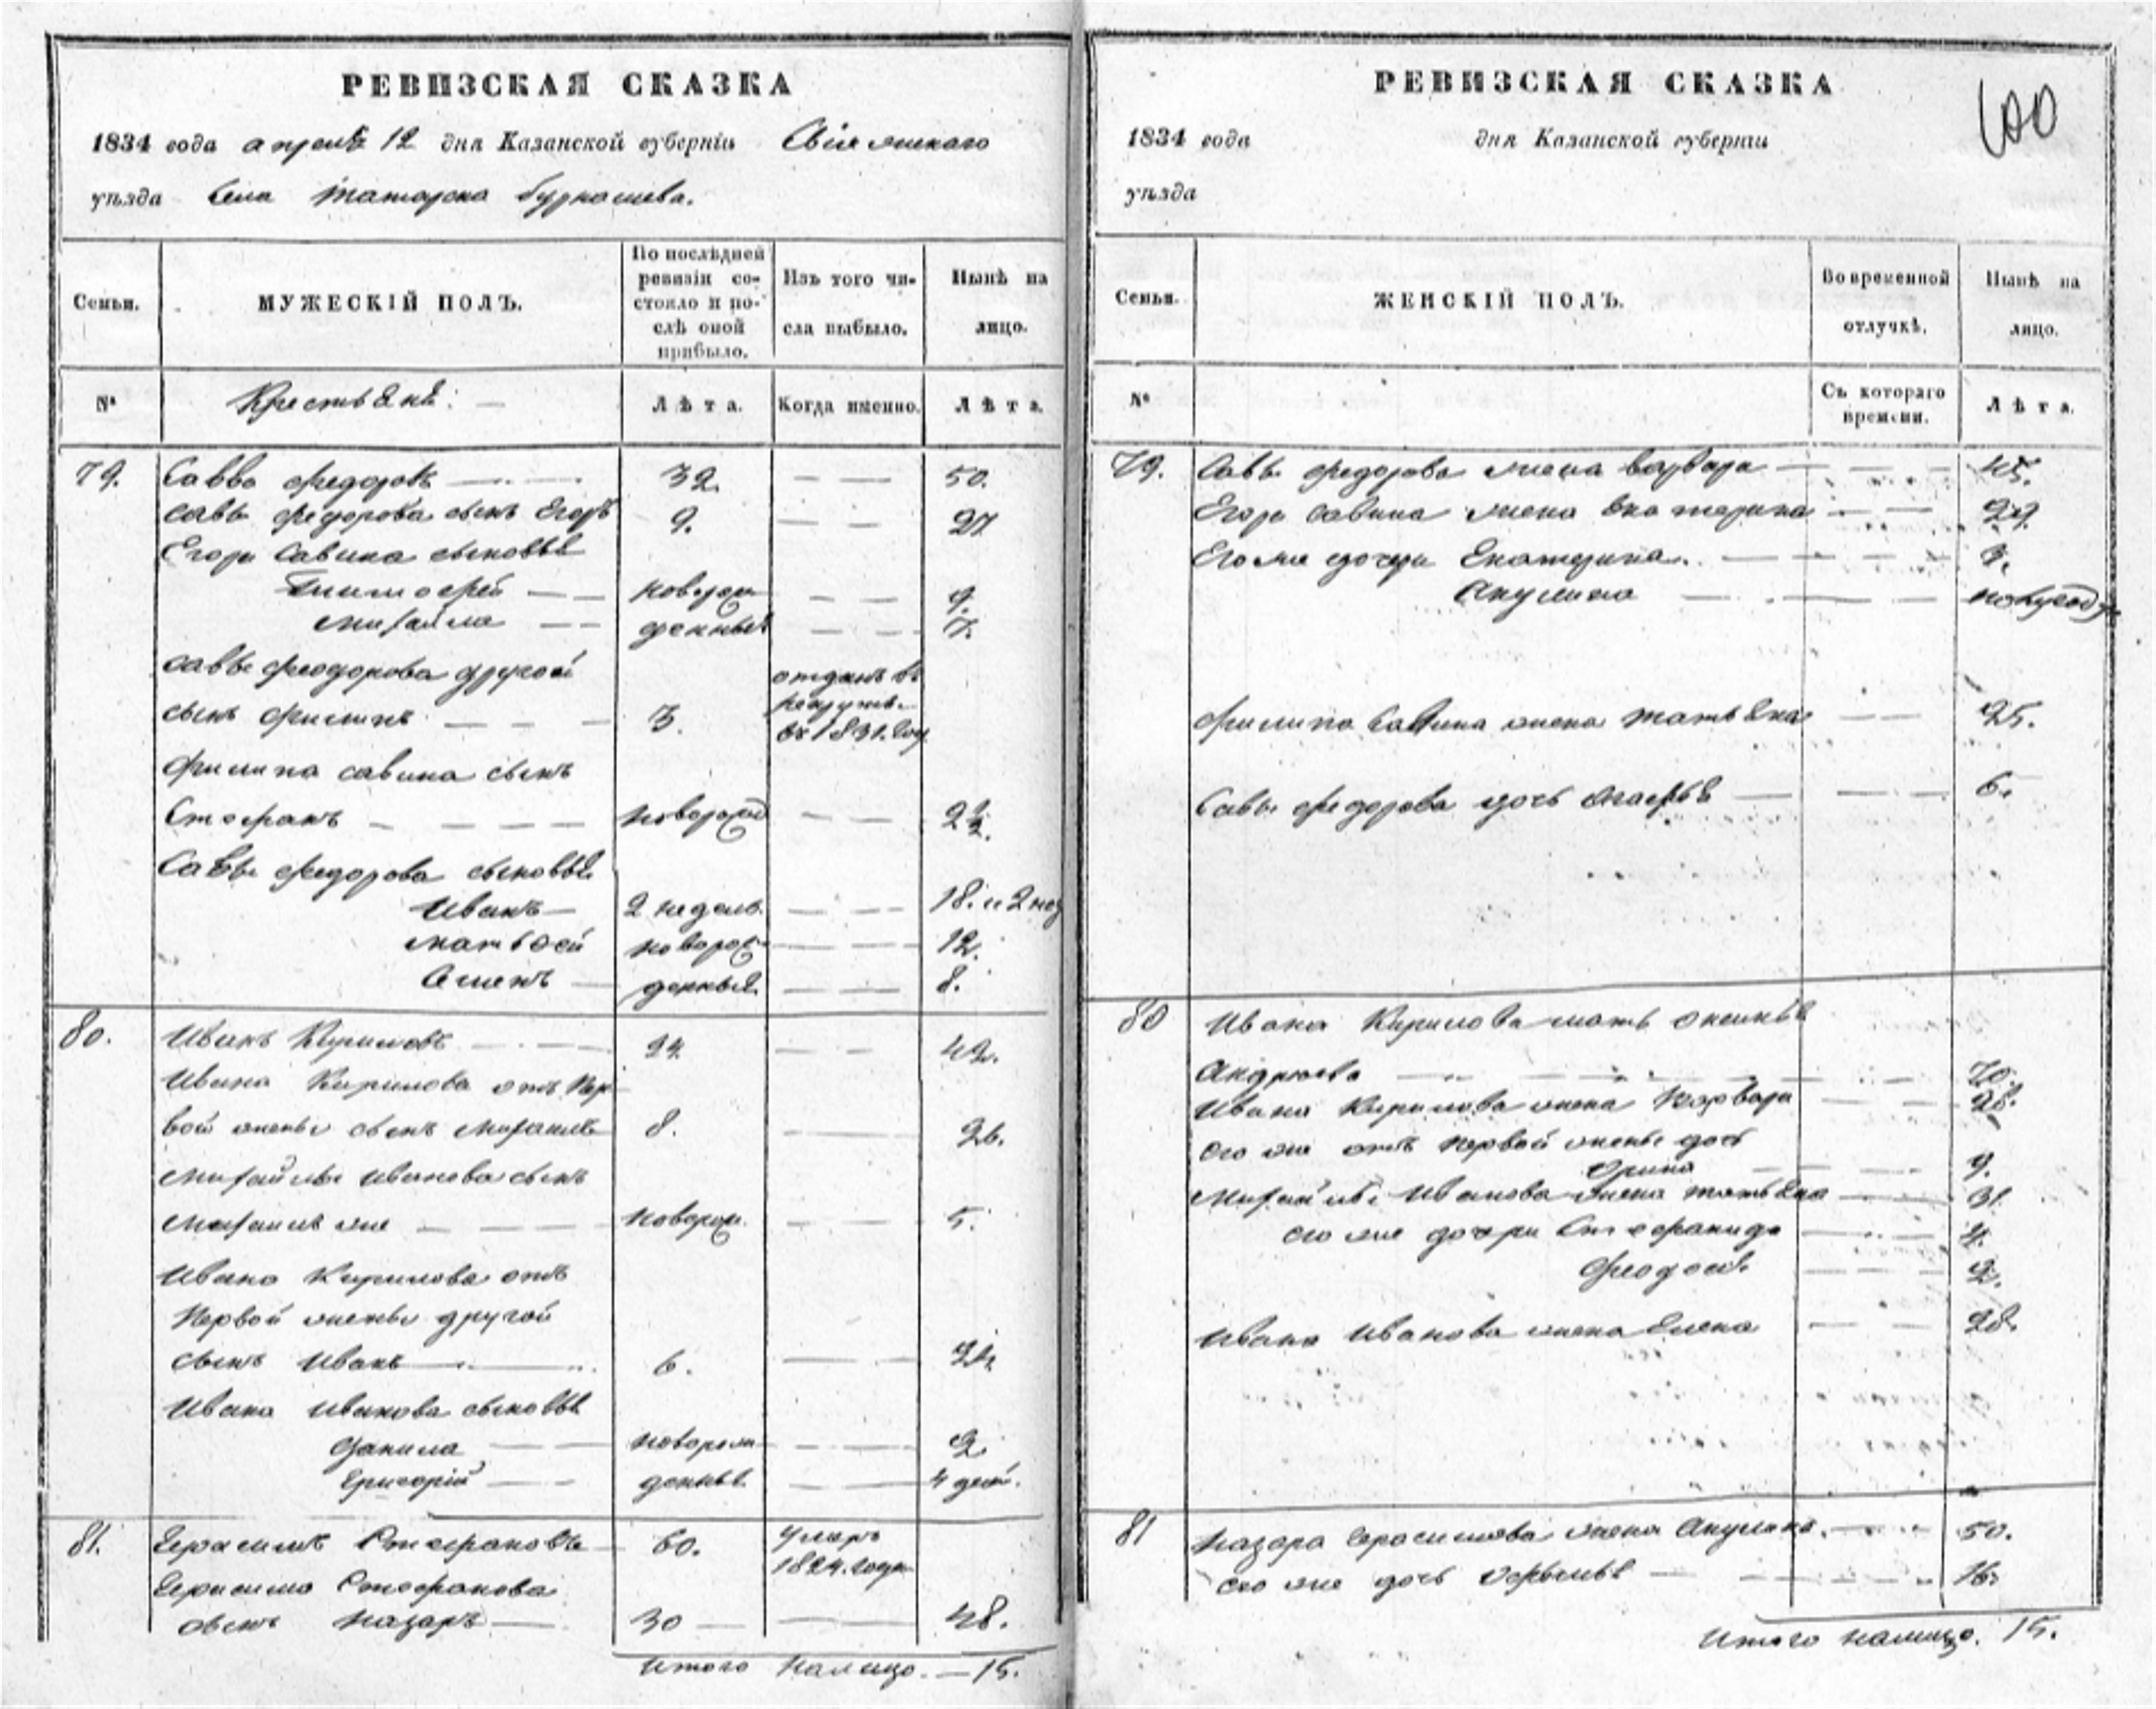 РЕВИЗСКАЯ СКАЗКА
1834 года апреля 12 дня Казанской губерніи Свіяжскаго
уѣзда Села Татарска Бурнашева.
Семьи.
МУЖЕСКІЙ ПОЛЪ.
По послѣдней ревизіи состояло и послѣ оной прибыло.
Изъ того числа выбыло.
Нынѣ на лицо.
№
Крестьяне:
Лѣта.
Когда именно.
Лѣта.
79. Савва Федоровъ 32. 50.
Савы Федорова сынъ Егоръ 9. 27
Егора Савина сыновья
Тимофей новорож 9.
Михайла денныя 7.
Саввы Феодорова другой отданъ въ
сынъ Филипъ 3. рекруты въ 1831. году
Филипа Савина сынъ
Стефанъ новорожд 2½.
Саввы Федорова сыновья
Иванъ 2 недель. 18. и 2 нед
Матвей новорож 12.
Семенъ денныя. 8.
80. Иванъ Кириловъ 24. 42.
Ивана Кирилова отъ пер
вой жены сынъ Михаилъ 8. 26.
Михайлы Иванова сынъ
Михаилъ же новорож. 5.
Ивана Кирилова отъ
первой жены другой
сынъ Иванъ 6. 24
Ивана Иванова сыновья
Данила новорож 2.
Григорій денныя 4 дней.
81. Герасимъ Стефановъ 60. умеръ 1824. года
Герасима Стефанова
сынъ Назаръ 30 48.
Итого налицо. — 15.
РЕВИЗСКАЯ СКАЗКА
1834 года дня Казанской губерніи
уѣзда
Семьи.
ЖЕНСКІЙ ПОЛЪ.
Во временной отлучкѣ.
Нынѣ на лицо.
№
Съ котораго времени.
Лѣта.
79. Савы Федорова жена Варвара 45.
Егора Савина жена Екатерина 29.
Его же дочери Екатерина. 3.
Акулина полугоду
Филипа Савина жена Татьяна 25.
Савы Федорова дочь Агафья 6.
80 Ивана Кирилова мать Аксинья
Андреева 70.
Ивана Кирилова жена Варвара 28.
Его же отъ первой жены дочь
Орина 9.
Михайлы Иванова жена Татьяна 31.
его же дочери Стефанида 4.
Феодось. 2.
Ивана Иванова жена Елена 28.
81 Назара Герасимова жена Акулина. 50.
его же дочь Офимья 16.
Итого налицо. 15.